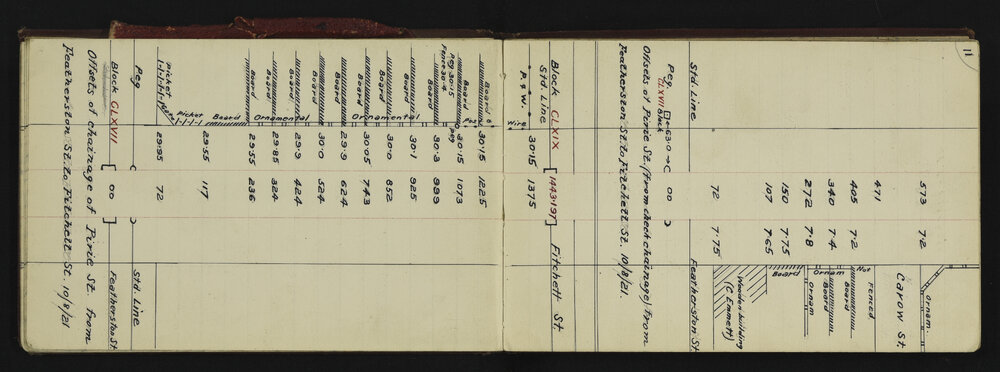 11
Ornam.
573 7.2
Carow St.
471 Not Fenced
405 7.2 Board
340 7.4 Ornam Board
272 7.8 Ornam
150 7.75 Board
107 7.65
Wooden building
(C Emmett)
72 7.75
Std. Line Featherston St.
Peg CLXVII Block 630 C 00
Offsets of Pirie St. (from check chainage) from
Featherston St. to Fitchett St. 10/8/21.
Block CLXIX [1443.197] Fitchett St.
Std. Line
P & W. Wire 30.15 1375
Board 30.15 1225
Board Pos Peg 30.15 1073
Peg 30.15
Fence 30.4
Board 30.3 999
Board 30.1 925
Board 30.0 852
Board Ornamental 30.05 743
Board 29.9 624
Board 30.0 524
Board 29.9 424
Board Ornamental 29.85 324
Board 29.55 236
Board
Picket 29.55 117
Picket 29.95 72
Peg Std. Line
Block CLXVII [00] Featherston St.
Offsets of chainage of Pirie St. from
Featherston St. to Fitchett St. 10/8/21